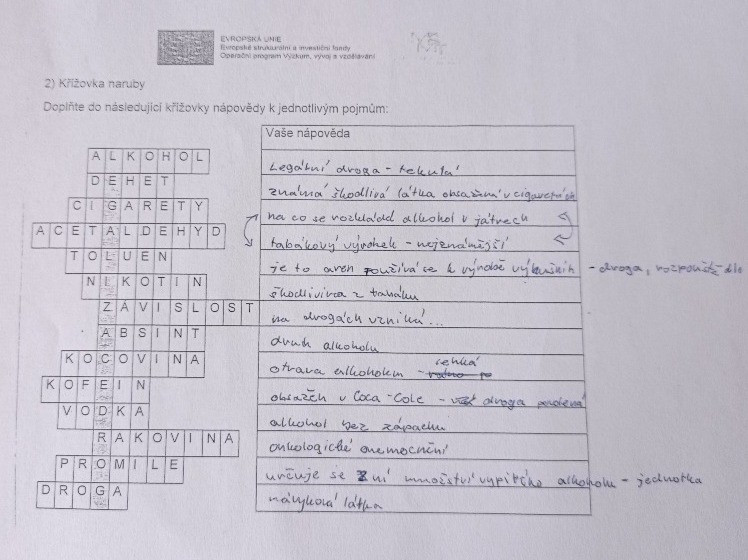 EVROPSKÁ UNIE
Evropské strukturální a investiční fondy
Operační program Výzkum, vývoj a vzdělávání
2) Křížovka naruby
Doplňte do následující křížovky nápovědy k jednotlivým pojmům:
Vaše nápověda
ALKOHOL Legální droga - tekutá
DEHET známá škodlivá látka obsažená v cigaretách
CIGARETY na co se rozkládá alkohol v játrech
ACETALDEHYD tabákový výrobek - nejznámější
TOLUEN je to aren používá se k výrobě výbušnin - droga, rozpouštědlo
NIKOTIN škodlivina z tabáku
ZÁVISLOST na drogách vzniká...
ABSINT druh alkoholu
KOCOVINA otrava alkoholem - lehká
KOFEIN obsažen v Coca-Cole - droga povolená
VODKA alkohol bez zápachu
RAKOVINA onkologické onemocnění
PROMILE určuje se ní množství vypitého alkoholu - jednotka
DROGA návyková látka